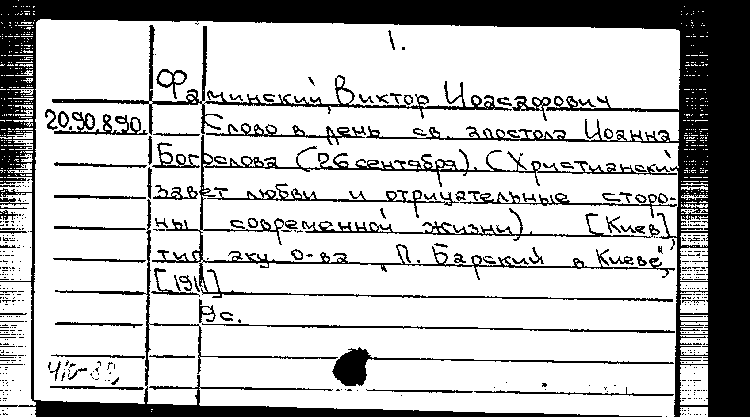 1.
Фаминский, Виктор Иоасафович
20.90.890. Слово в день св. апостола Иоанна
Богослова (26 сентября). (Христианский
завет любви и отрицательные сторо-
ны современной жизни). [Киев],
тип. акц. о-ва "П. Барский в Киеве",
[1911].
9 с.